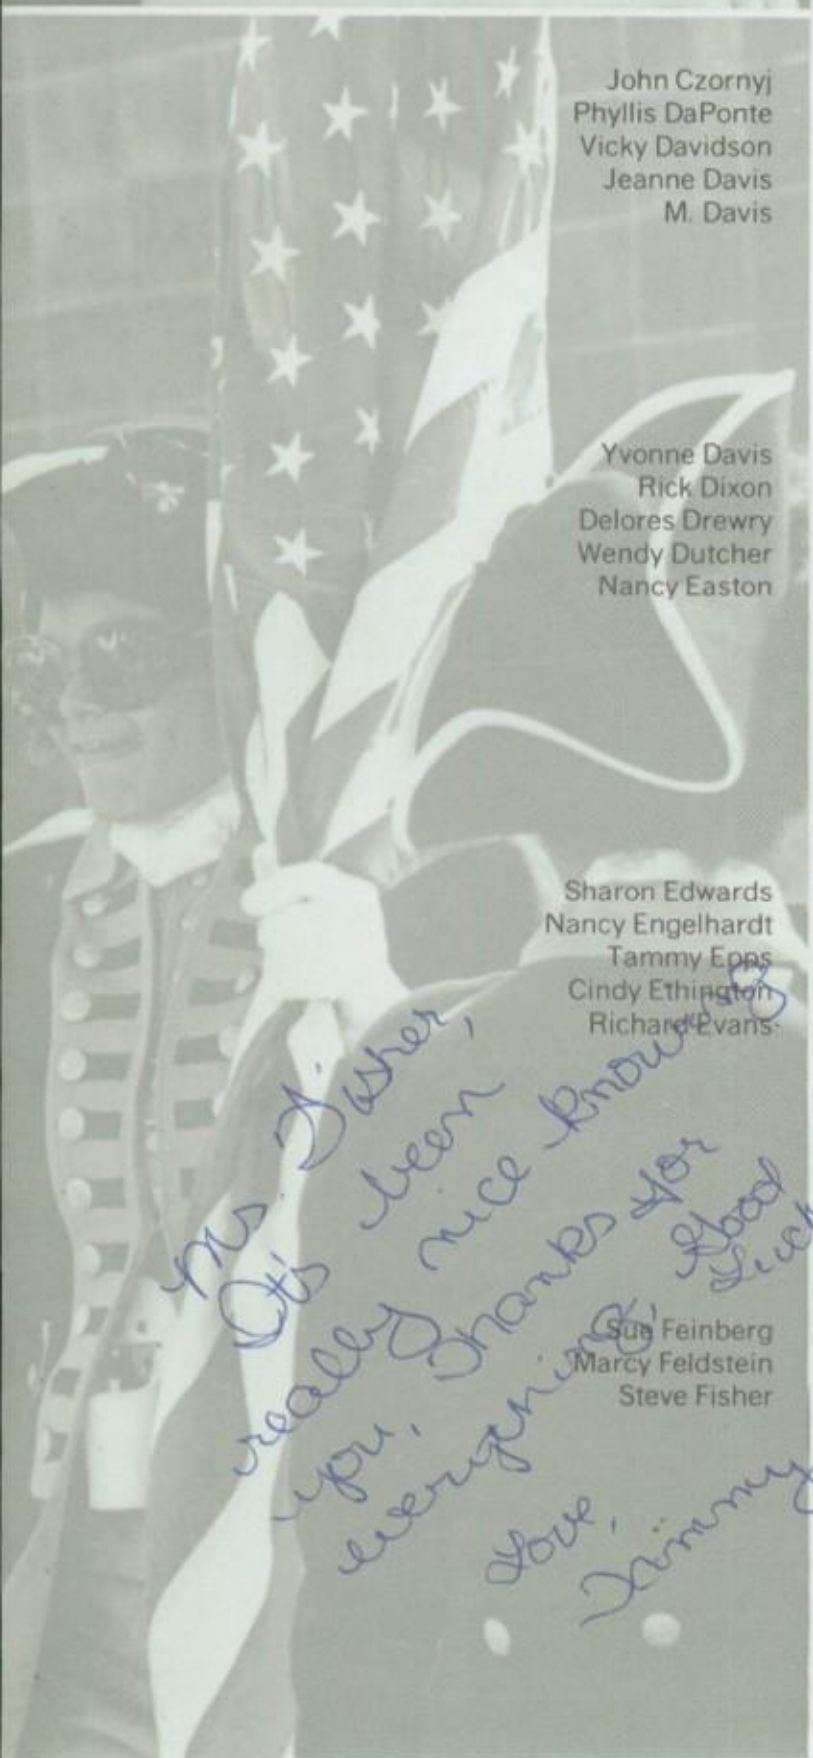 John Czornyj
Phyllis DaPonte
Vicky Davidson
Jeanne Davis
M. Davis
Yvonne Davis
Rick Dixon
Delores Drewry
Wendy Dutcher
Nancy Easton
Sharon Edwards
Nancy Engelhardt
Tammy Epps
Cindy Ethington
Richard Evans
Sue Feinberg
Marcy Feldstein
Steve Fisher
Ms. Fisher,
It's been
really nice knowing
you, Thanks for
everything, Good
Luck
Love,
Tammy